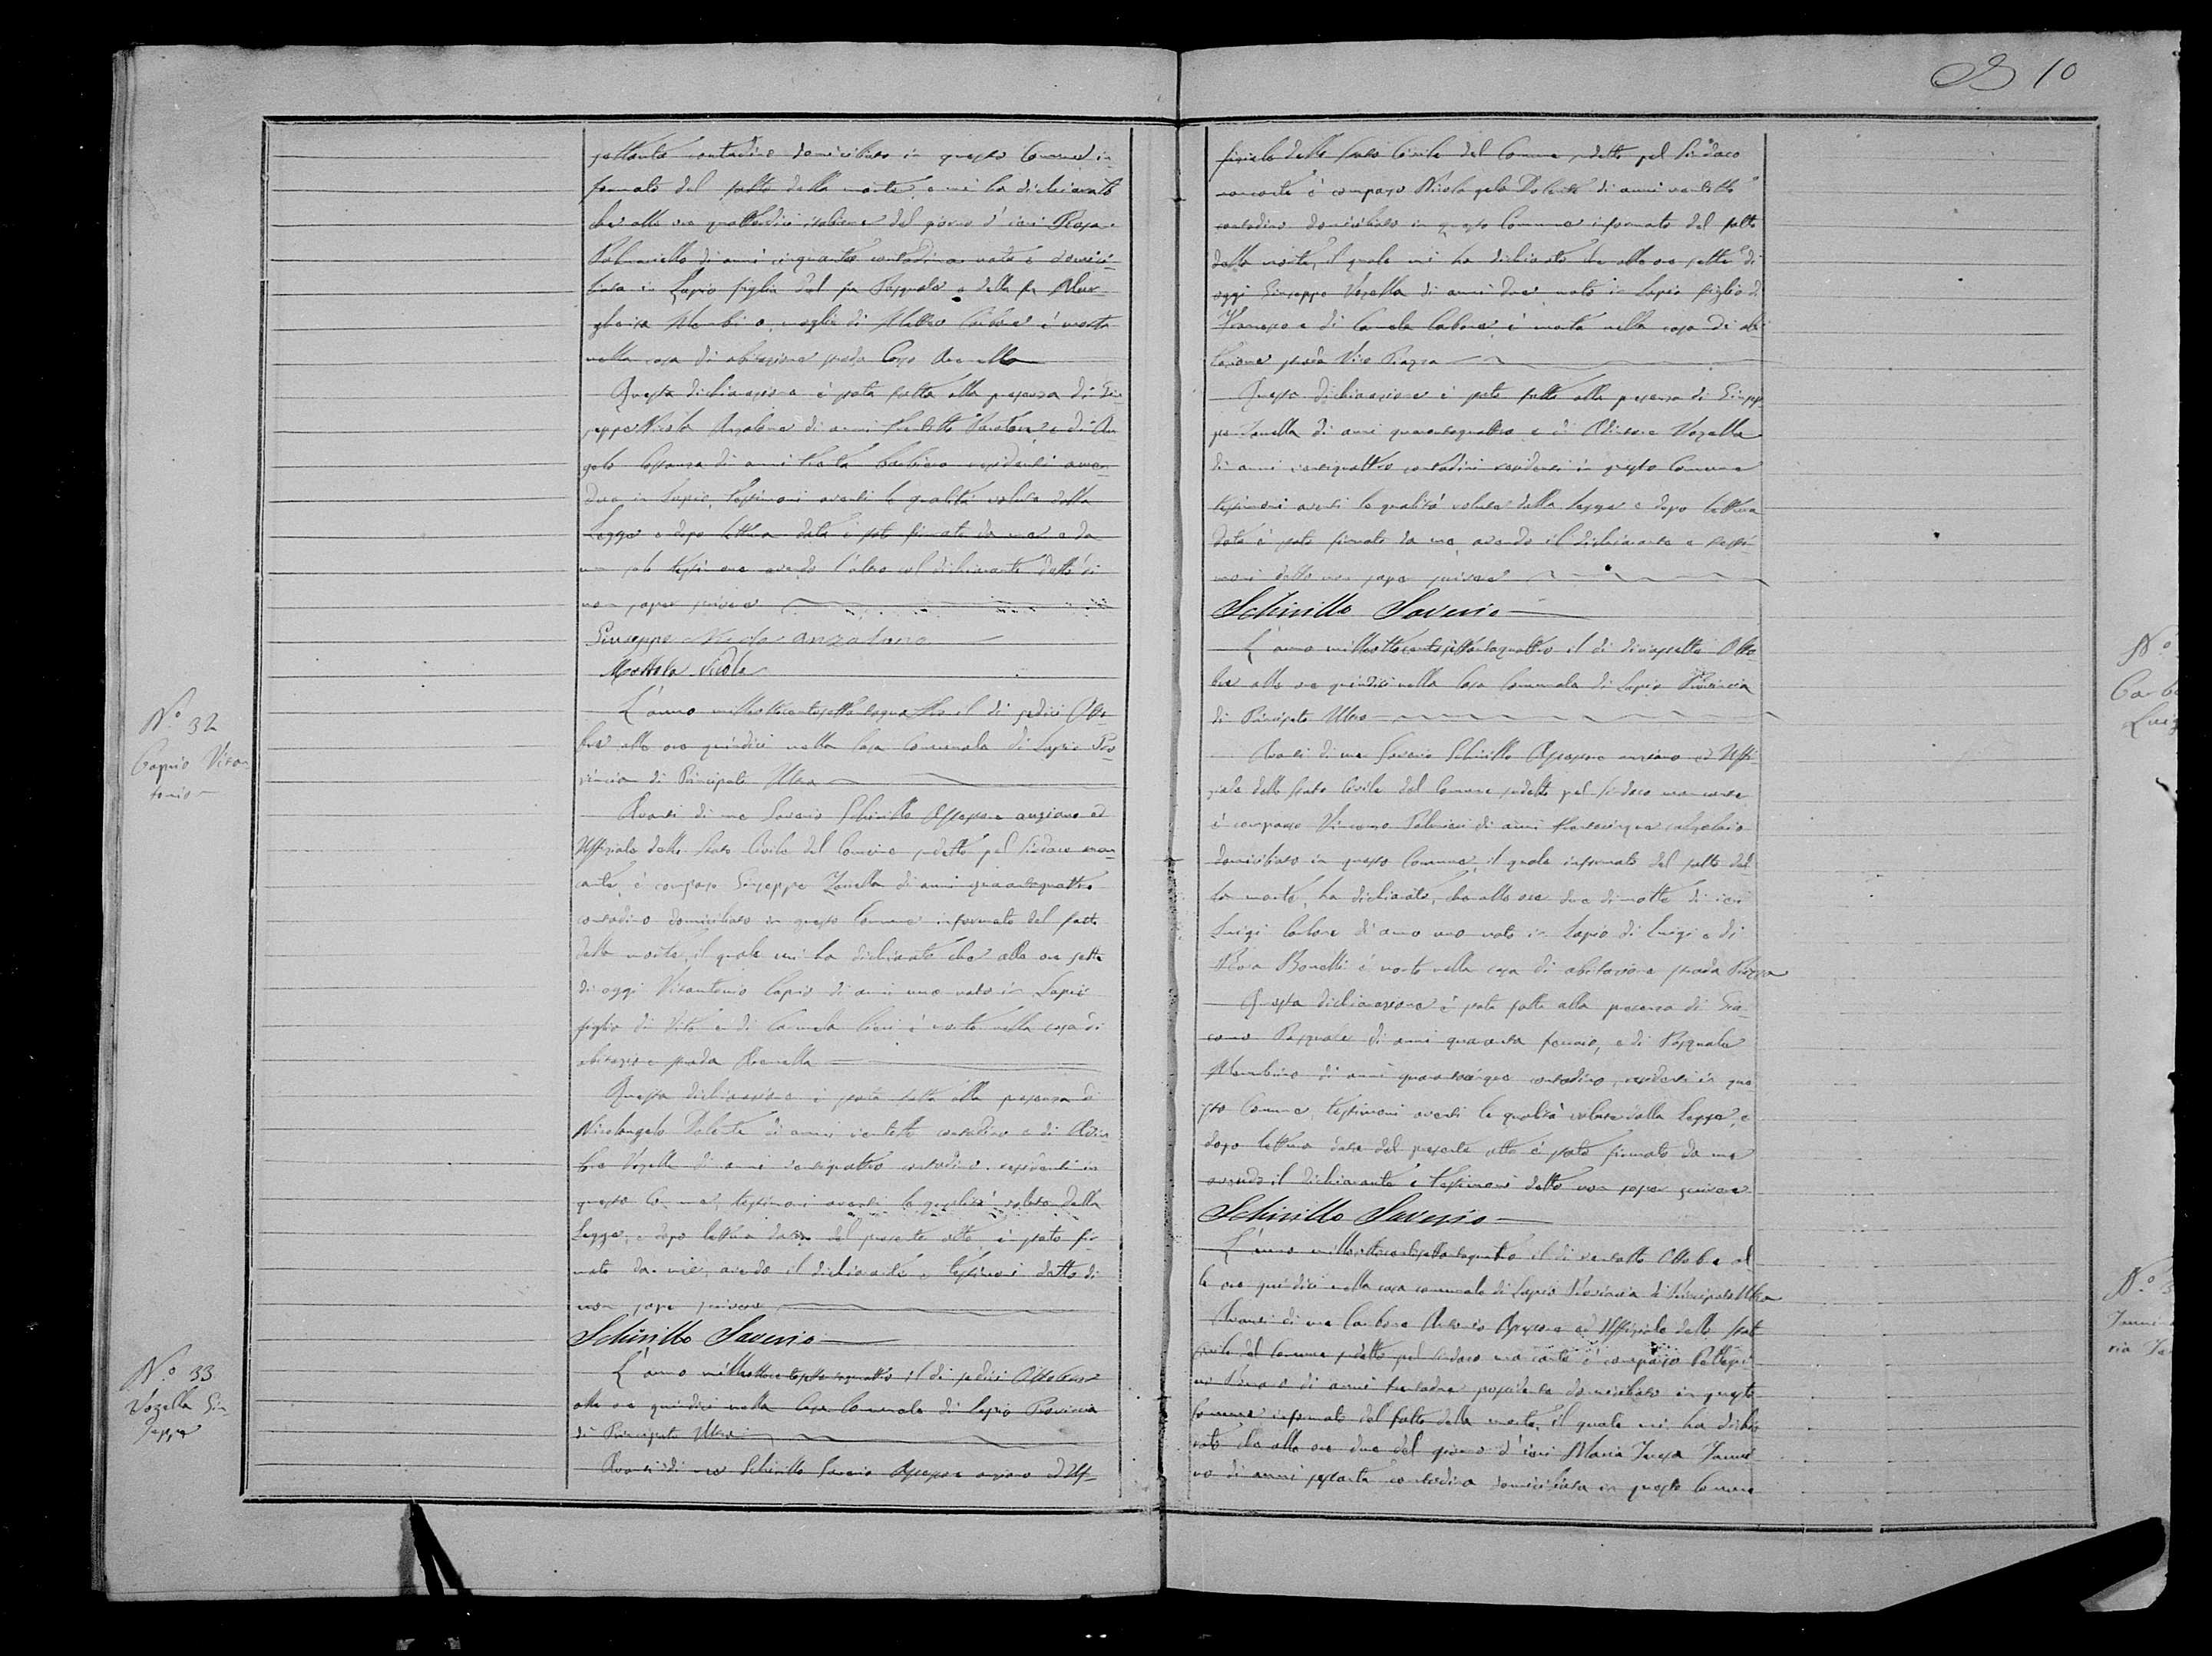 S 10
settanta contadino domiciliato in questo Comune in-
formato del fatto della morte e mi ha dichiarato
che alle ore quattordici italiane del giorno d'ieri Rosa
Palmariello di anni cinquanta contadina nata e domici-
liata in Lapio figlia del fu Pasquale e della fu Mar-
gherita Mambino, moglie di Matteo Carbone è morta
nella casa di abitazione strada Capo
Questa dichiarazione è stata fatta alla presenza di Giu-
seppe Nicola Anzalone di anni trentotto e di An
gelo Costanza di anni trenta barbiere residenti amen
due in Lapio, testimoni aventi le qualità volute dalla
Legge e dopo lettura data è stato firmato da me e da
un solo testimone avendo l'altro col dichiarante detto di
non saper scrivere
Giuseppe Nicola Anzalone
Mottola Nicola
N.º 32
Caprio Vitan-
tonio
L'anno milleottocentosettantaquattro il dì sedici Otto-
bre alle ore quindici nella Casa Comunale di Lapio Pro
vincia di Principato Ultra
Avanti di me Saverio Schirillo Assessore anziano ed
Uffiziale dello Stato Civile del Comune sudetto pel Sindaco man
cante, è comparso Giuseppe Zanella di anni quarantaquattro
contadino domiciliato in questo Comune informato del fatto
della morte, il quale mi ha dichiarato che alle ore sette
di oggi Vitantonio Caprio di anni uno nato in Lapio
figlio di Vito e di Carmela è morto nella casa di
abitazione strada
Questa dichiarazione è stata fatta alla presenza di
Nicolangelo Dolente di anni ventotto contadino e di
Vozella di anni ventiquattro contadino residenti in
questo Comune, testimoni aventi le qualità volute dalla
Legge, e dopo lettura data del presente atto è stato fir-
mato da me, avendo il dichiarante e testimoni detto di
non saper scrivere
Schirillo Saverio
N.º 33
Vozella Giu-
seppe
L'anno milleottocentosettantaquattro il dì sedici Ottobre
alle ore quindici nella Casa Comunale di Lapio Provincia
di Principato Ultra
Avanti di me Schirillo Saverio Assessore anziano ed Uf-
fiziale dello Stato Civile del Comune sudetto pel Sindaco
mancante è comparso Nicolangelo Dolente di anni ventotto
contadino domiciliato in questo Comune informato del fatto
della morte, il quale mi ha dichiarato che alle ore sette di
oggi Giuseppe Vozella di anni due nato in Lapio figlio di
Francesco e di Carmela Carbone è morto nella casa di abi
tazione strada Vico Piazza
Questa dichiarazione è stata fatta alla presenza di Giusep
pe Zanella di anni quarantaquattro e di Vozella
di anni ventiquattro contadini residenti in questo Comune
testimoni aventi le qualità volute dalla Legge e dopo lettura
data è stato firmato da me avendo il dichiarante e testi-
moni detto non saper scrivere
Schirillo Saverio
N.º
Carbo
Luig
L'anno milleottocentosettantaquattro il dì diciassette Otto-
bre alle ore quindici nella Casa Comunale di Lapio Provincia
di Principato Ultra
Avanti di me Saverio Schirillo Assessore anziano ed Uffi-
ziale dello Stato Civile del Comune sudetto pel Sindaco mancante
è comparso Vincenzo Palmieri di anni trentacinque calzolaio
domiciliato in questo Comune, il quale informato del fatto del
la morte, ha dichiarato, che alle ore due di notte di ieri
Luigi Carbone di anno uno nato in Lapio di Luigi e di
Bonelli è morto nella casa di abitazione strada Piazza
Questa dichiarazione è stata fatta alla presenza di Gia-
como Pasquale di anni quaranta ferraio, e di Pasquale
Mambino di anni quarantacinque contadino, residenti in que
sto Comune, testimoni aventi le qualità volute dalla Legge, e
dopo lettura data del presente atto è stato firmato da me
avendo il dichiarante e testimoni detto non saper scrivere
Schirillo Saverio
N.º 3
Iannin
ria Te
L'anno milleottocentosettantaquattro il dì ventotto Ottobre al
le ore quindici nella casa comunale di Lapio Provincia di Principato Ultra
Avanti di me Carbone Assessore ed Uffiziale dello Stato
civile del Comune sudetto pel Sindaco mancante è comparso
di anni domiciliato in questo
Comune informato del fatto della morte, il quale mi ha dichia
rato che alle ore due del giorno d'ieri Maria Teresa Ianni
no di anni sessanta contadina domiciliata in questo Comune